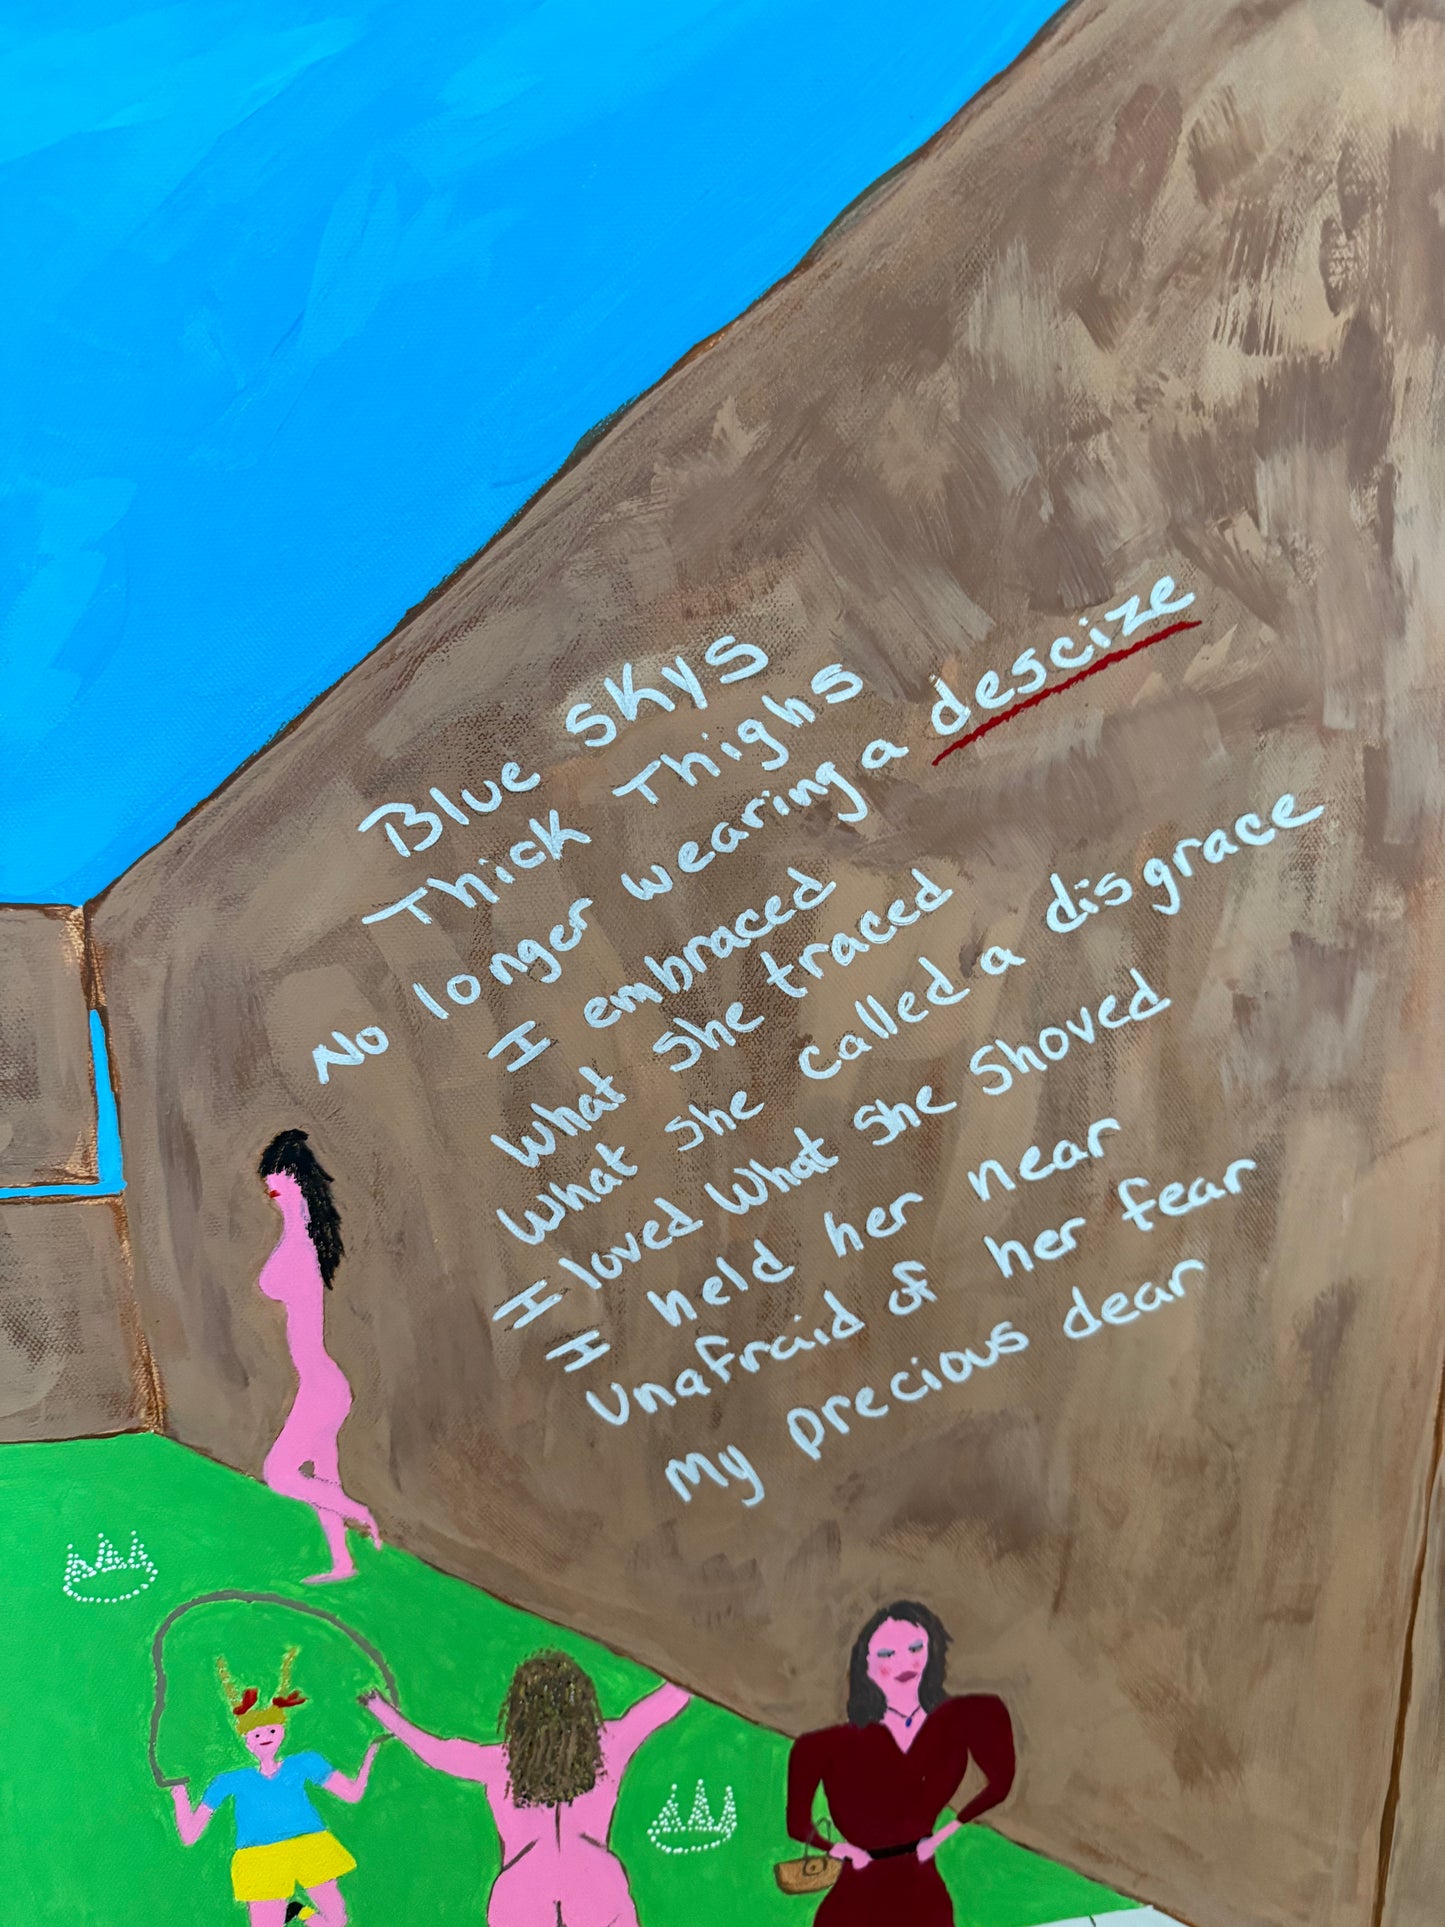 Blue skys
Thick Thighs
No longer wearing a descize
I embraced
What she traced
What she called a disgrace
I loved What she Shoved
I held her near
Unafraid of her fear
My precious dear